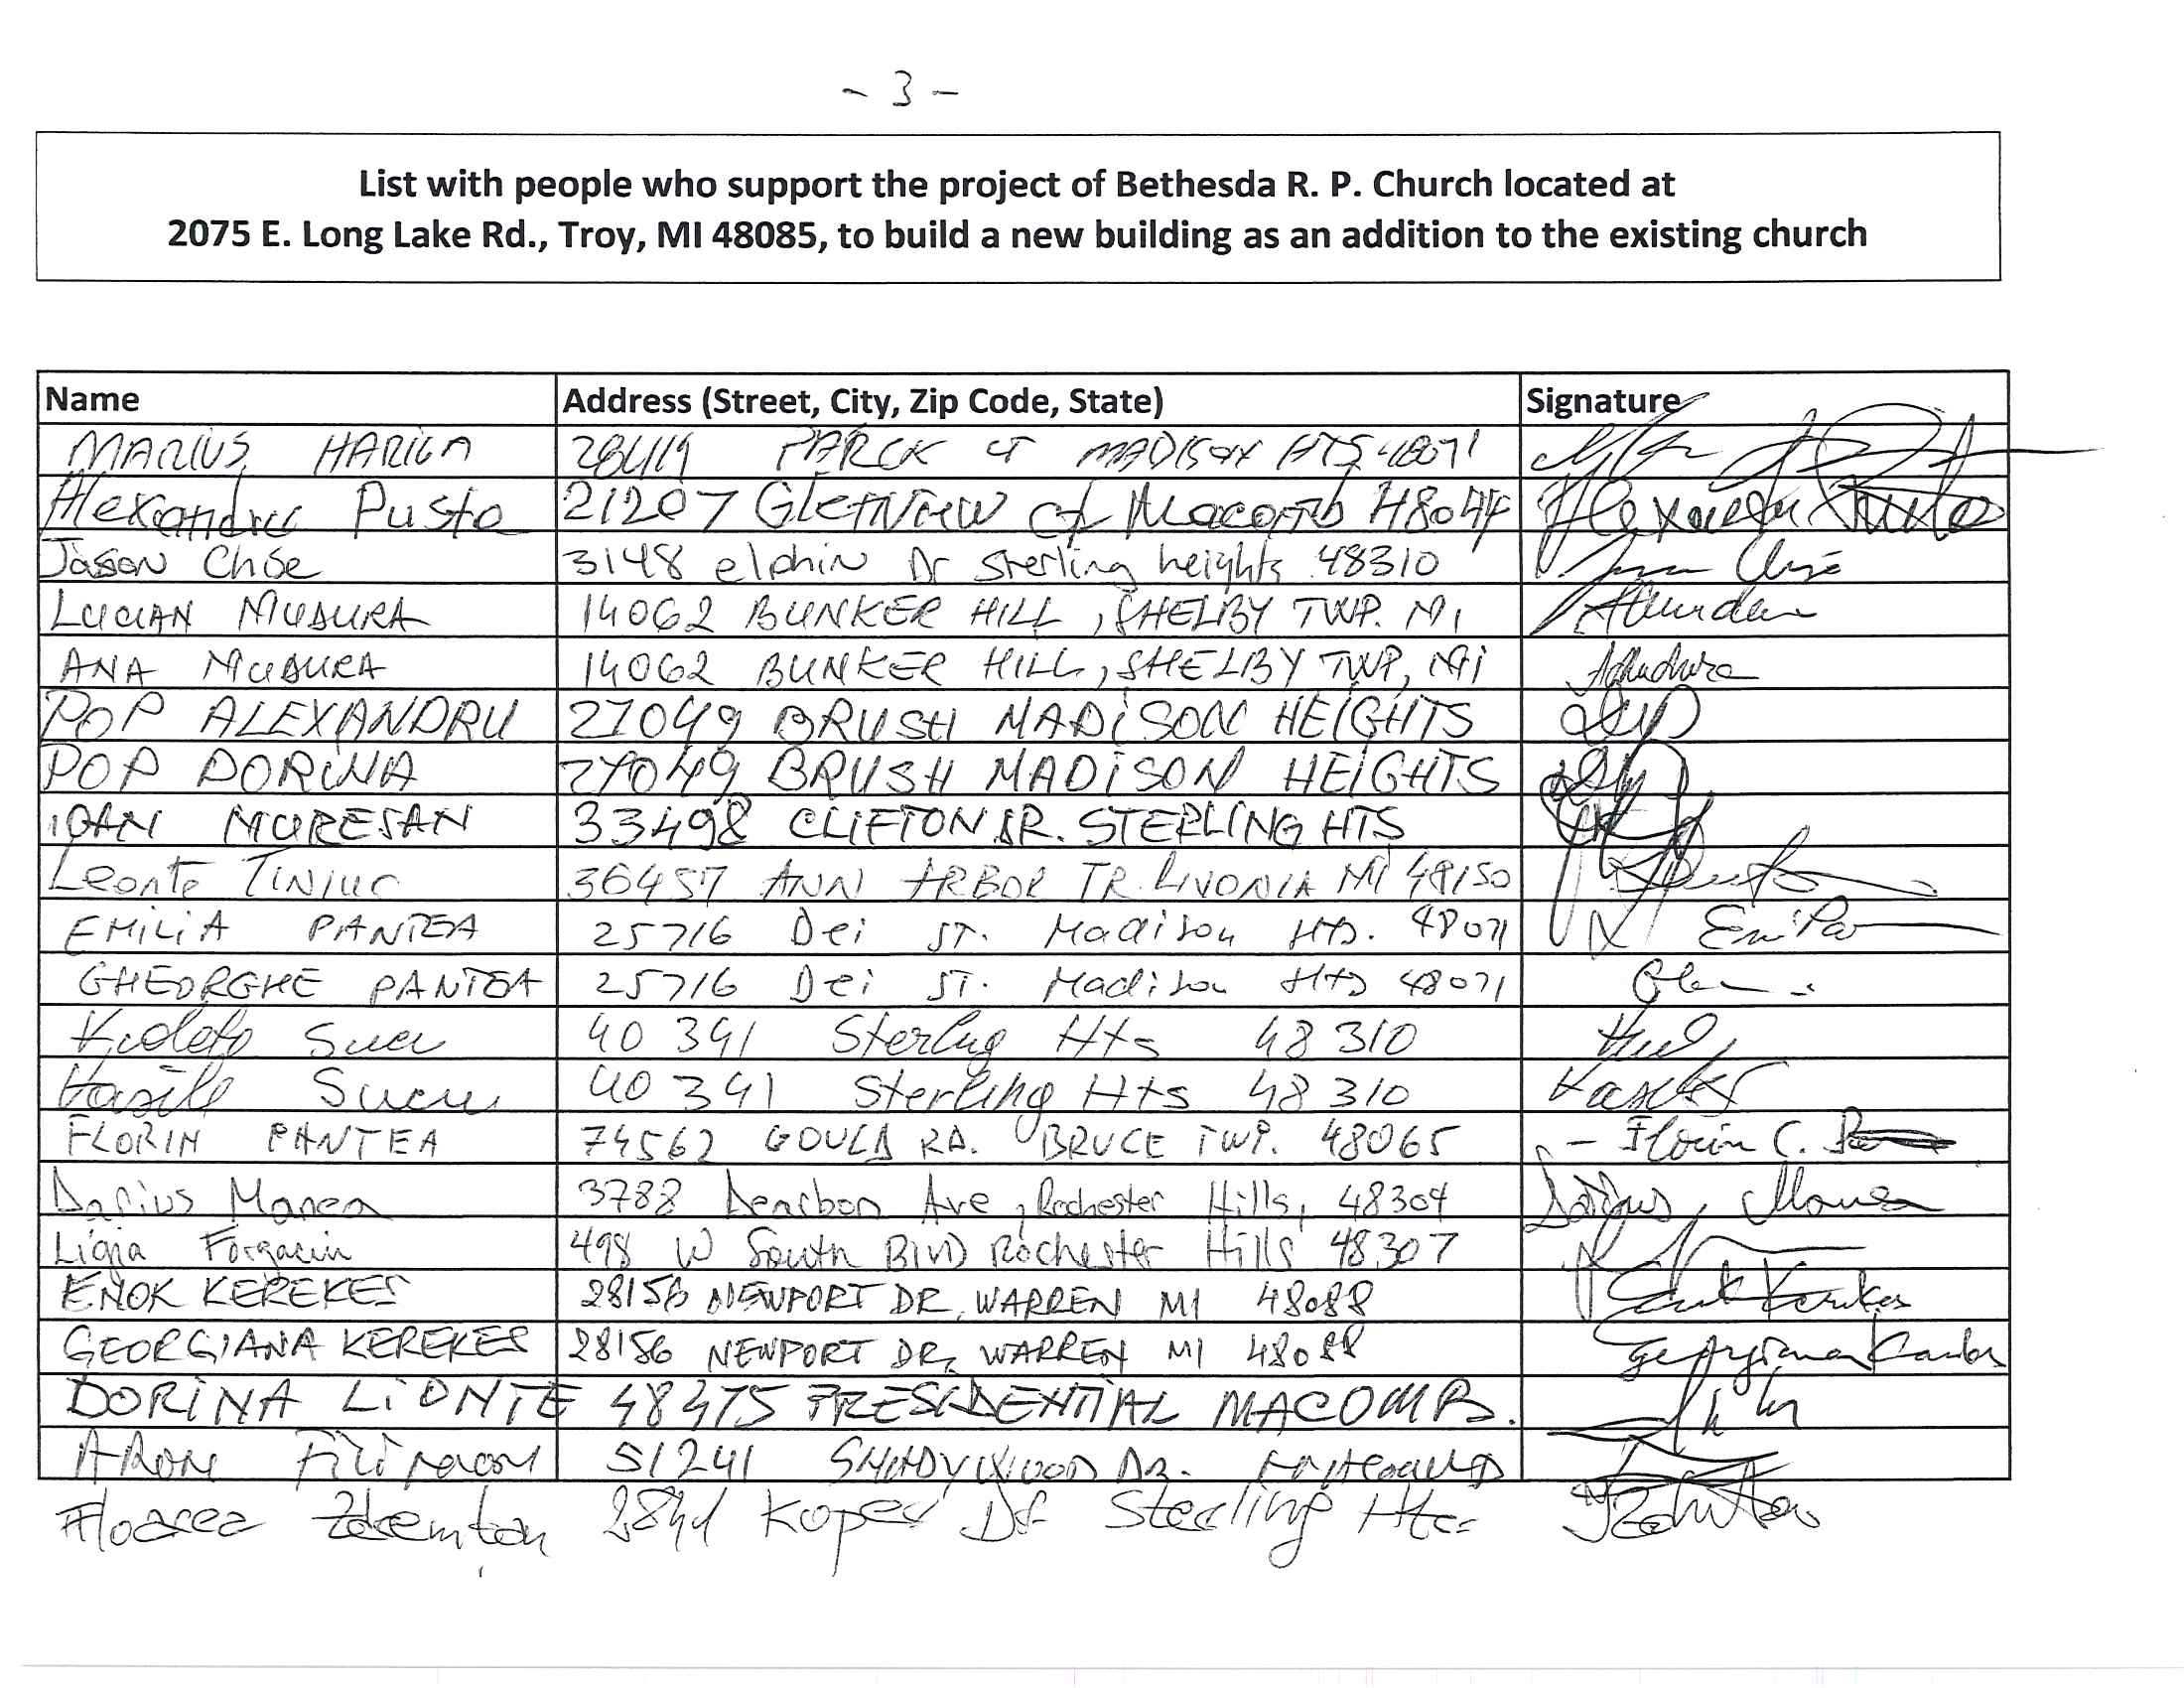 - 3 -
List with people who support the project of Bethesda R. P. Church located at
2075 E. Long Lake Rd., Troy, MI 48085, to build a new building as an addition to the existing church
Name Address (Street, City, Zip Code, State) Signature
MARIUS CT MADISON HTS 48071
Alexandru Pusta 21207 Glenview ct Macomb 48044
Jason 3148 elphin Dr Sterling heights 48310
LUCIAN MUDURA 14062 BUNKER HILL, SHELBY TWP. MI
ANA MUDURA 14062 BUNKER HILL, SHELBY TWP, MI
POP ALEXANDRU 27049 BRUSH MADISON HEIGHTS
POP DORINA 27049 BRUSH MADISON HEIGHTS
IOAN MURESAN 33498 CLIFTON DR. STERLING HTS
Leonte Tiniuc 36457 ANN ARBOR TR. LIVONIA MI 48150
EMILIA PANTEA 25716 Dei ST. Madison HTS. 48071
GHEORGHE PANTEA 25716 Dei ST. Madison HTS 48071
40 391 Sterling Hts 48 310
Vasile Sucu 40 391 Sterling Hts 48 310
FLORIN PANTEA 74562 GOULD RD. BRUCE TWP. 48065 - Florin C.
Darius Manea 3788 Dearbon Ave, Rochester Hills, 48309 Darius Manea
Ligia 498 W South Blvd Rochester Hills 48307
ENOK KEREKES 28156 NEWPORT DR, WARREN MI 48088 Enok Kerekes
GEORGIANA KEREKES 28156 NEWPORT DR, WARREN MI 48088 Georgiana
DORINA LIONTE 48475 PRESIDENTIAL MACOMB.
ARON Filimon 51241 SHADYWOOD DR.
Floarea Dr Sterling Hts